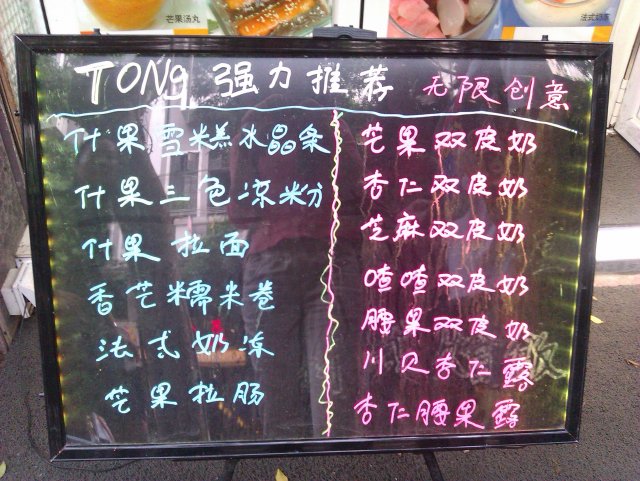 芒果汤丸
法式奶冻
TONg 强力推荐 无限创意
什果雪糕水晶条
什果三色凉粉
什果拉面
香芒糯米卷
法式奶冻
芒果拉肠
芒果双皮奶
杏仁双皮奶
芝麻双皮奶
喳喳双皮奶
腰果双皮奶
川贝杏仁露
杏仁腰果露